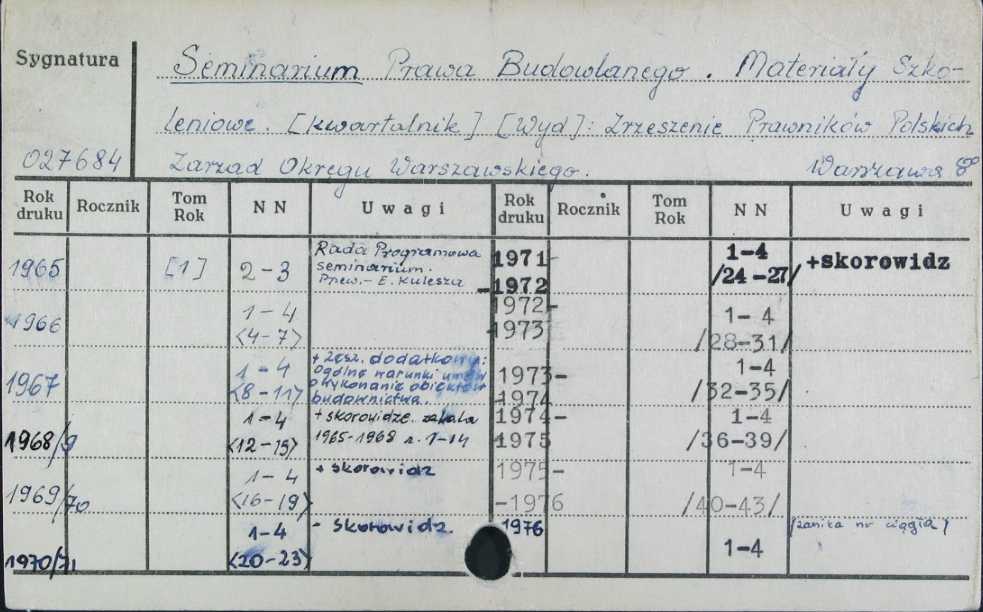 Sygnatura
Seminarium Prawa Budowlanego. Materiały Szko-
leniowe. [kwartalnik] [Wyd]: Zrzeszenie Prawników Polskich
027684 Zarząd Okręgu Warszawskiego. Warszawa 8°
Rok druku Rocznik Tom Rok NN Uwagi Rok druku Rocznik Tom Rok NN Uwagi
1965 [1] 2-3 Rada Programowa
seminarium.
Przew.- E. Kulesza
1966 1-4
<4-7>
1967 1-4
<8-11>
+ zesz. dodatkowy:
Ogólne warunki umów
o wykonanie obiektów
budownictwa.
1968/9 1-4
<12-15>
+ skorowidz za lata
1965-1968 n. 1-14
1969/70 1-4
<16-19>
+ skorowidz
1970/71 1-4
<20-23>
- skorowidz.
1971-
-1972 1-4
/24-27/ +skorowidz
1972-
-1973 1-4
/28-31/
1973-
-1974 1-4
/32-35/
1974-
-1975 1-4
/36-39/
1975-
-1976 1-4
/40-43/
1976 1-4
(zanika nr ciągła)